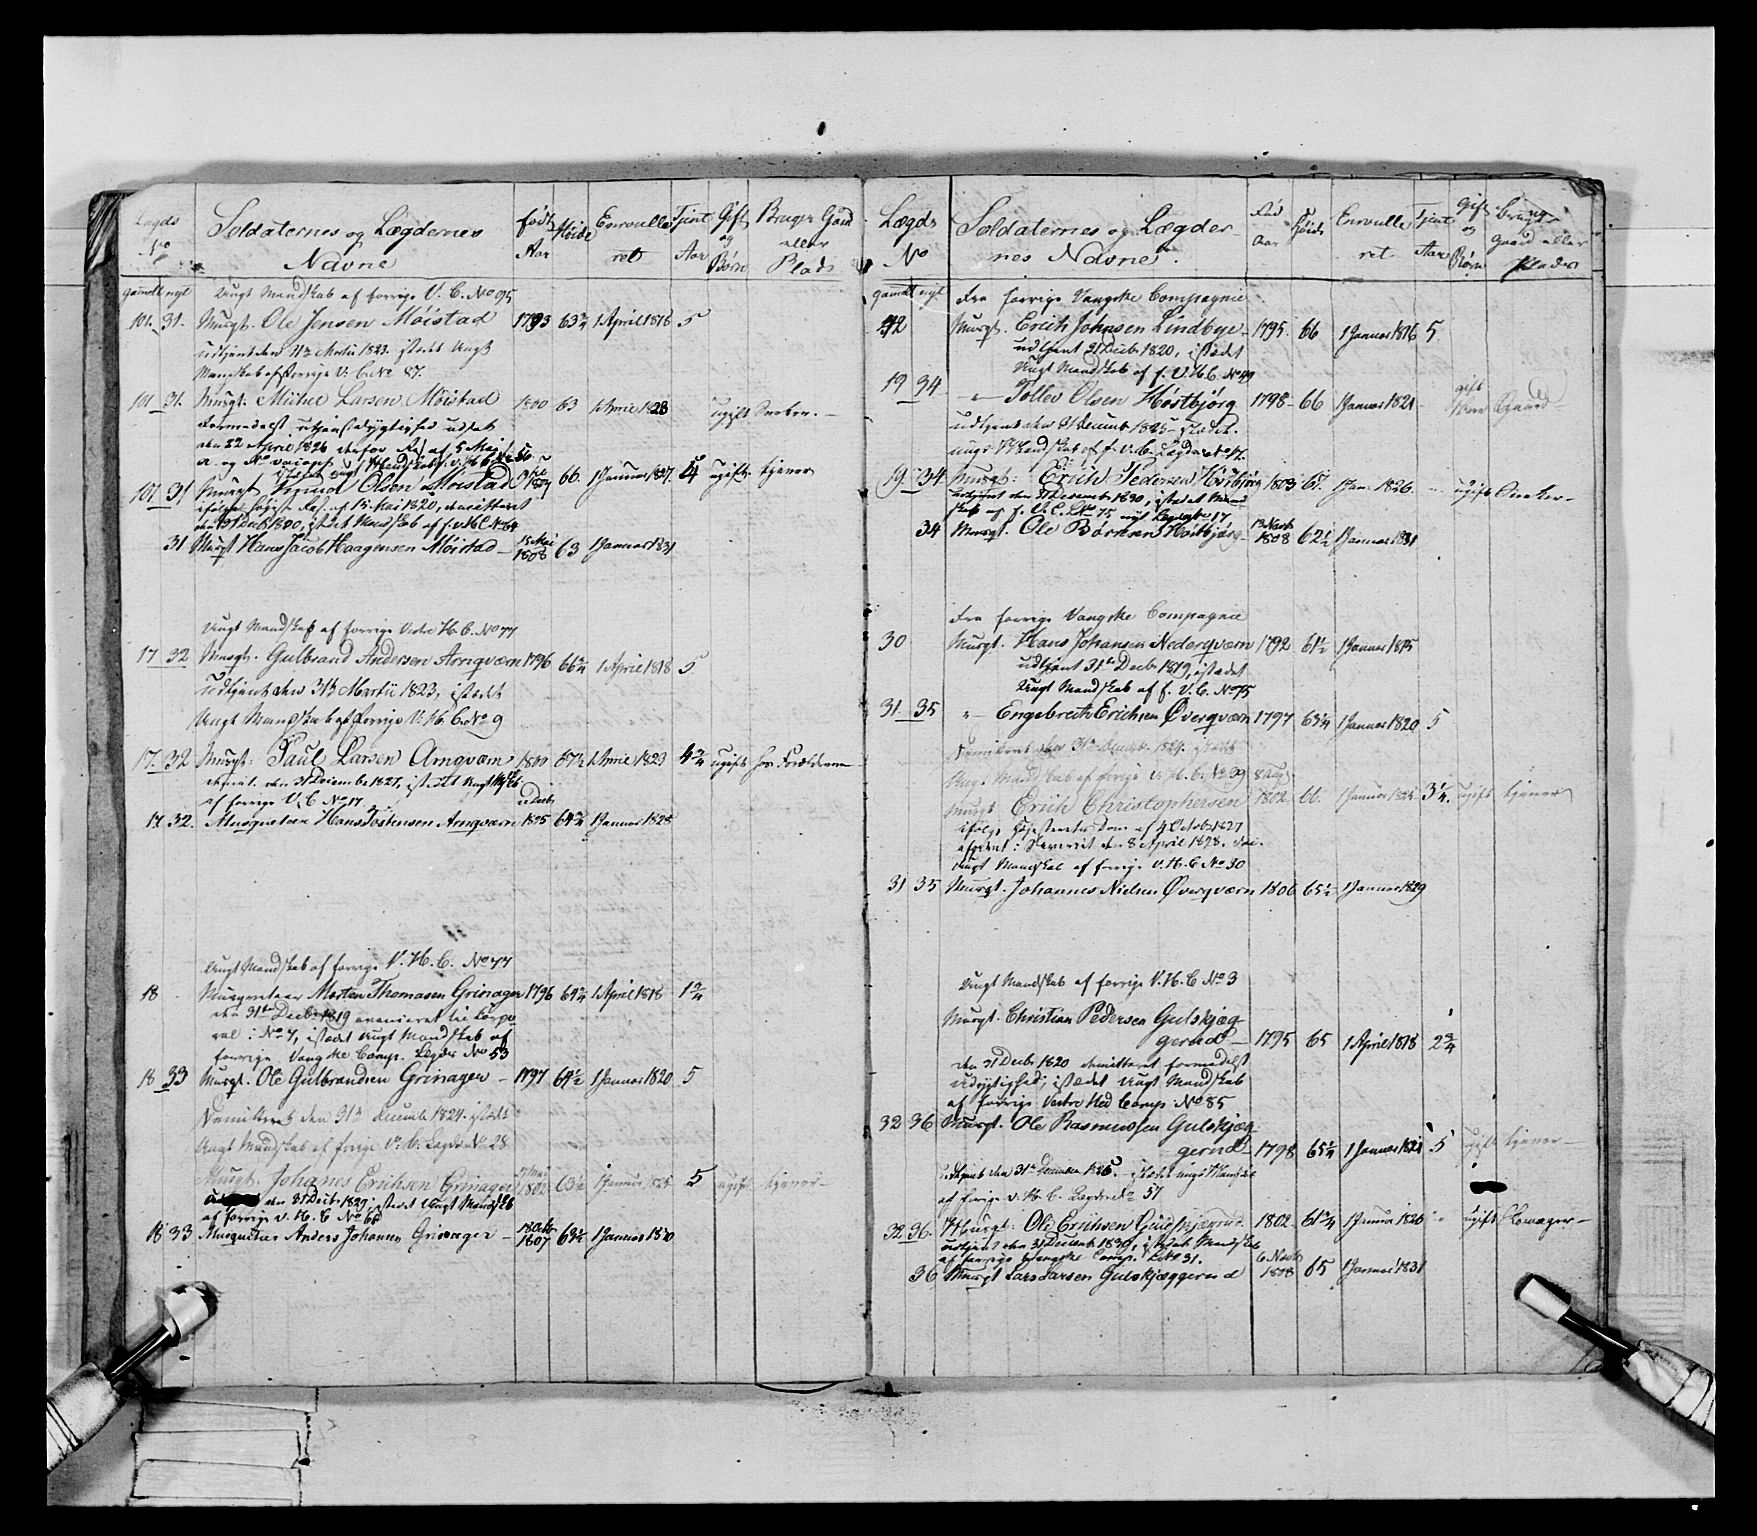 Lægds No
Soldaternes og Lægdernes Navne
født Aar
Høide
Enroulleret
Tjent Aar
Gift og Børn
Bruger Gaard eller Plads
gamelt nyt
Ungt Mandskab af forrige V. C. No 95
101. 31. Musqt. Ole Jensen Möistad 1793 63¾ 1 April 1818 5
udtjent den 31te Martii 1823. istedet Ungt
Mandskab af forrige V: C. No 87.
101 31. Musqt: Larsen Möistad 1800 63 1 April 1823 ugift
den 22 April 1826
107 31 Musqt Knud Olsen Möistad 66. 1 Januar 1827. ugift tjener
31 Musqt Hans Jacob Haagensen Möistad – 1808 63 1 Januar 1831
Ungt Mandskab af forrige Vestre H. C. No 77
17 32 Musqt. Gulbrand Andersen Arnqværn 1796 66¾ 1 April 1818 5
udtjent den 31te Martii 1823, istedet
Ungt Mandskab af forrige V: H. C. No 9
17. 32 Musqt: Paul Larsen Arnqværn 1800 67½ 1 April 1823 4¾ ugift hos Forældrene
den 31 December 1827, istedet Ungt
af forrige V. C No 17
17. 32. Musqueteer Hans Arnqværn 1805 64¾ 1 Januar 1828
Ungt Mandskab af forrige V. H. C. No 77
18 Musqueteer Morten Thomasen Grinager 1796 64¾ 1 April 1818 1¾
den 31te Decbr 1819 avanceret til Corpo
ral: No 7, istedet Ungt Mandskab af
forrige Vangske Comp. Legds No 53
18 33 Musqt. Ole Gulbrandsen Grinager – 1797 64½ 1 Januar 1820 5
Dimitteret den 31te Decemb: 1824. istedet
Ungt Mandskab af forige V: C. Legds No 28
Musqt. Johannes Erichsen Grinager 1802 63½ 1 Januar 1825 5 ugift tjener –
den 31 Decbr 1829, istedet Ungt Mandskb
af forrige V. H. C No 66
18 33 Musqueteer Anders Johannsen Grinager – 1807 63½ 1 Januar 1830
Lægds No
Soldaternes og Lægdernes Navne
Fød Aar
Høide
Enroulleret
Tjent Aar
Gift og Børn
bruger Gaard eller Plads
gamelt nyt
Fra forrige Vangske Compagnie
42 Musqt. Erich Johnsen Lindbye – 1795. 66 1 Januar 1816 5
udtjent 31 Decbr 1820, istedet
Ungt Mandskab af f. V. H. C No 49
19 34 " Tollev Olsen Höstbjörg 1798 – 66 1 Januar 1821 – gift Gaard
udtjent den 31 Decemb 1825 istedet.
ungt Mandskab af f. V. C. Legds No 74.
19. 34 Musqt: Erich Pedersen Höstbjörg 1803 1 Jan: 1826. ugift
udtjent den 31 December 1830, istedet Mand
skab af f. V. C. LNo 75 nyt Legds No 17
34 Musqt. Ole Börresen Höstbjörg – 1808 62½ 1 Januar 1831
Fra forrige Vangske Compagnie
30 Musqt. Hans Johansen Nederqværn 1792 61½ 1 Januar 1815
udtjent 31te Decbr 1819, istedet
Ungt Mandskab af f. V. C. No 75
31 35 " Engebreth Erichsen Øverqværn 1797 1 Januar 1820 5
Dimiteret den 31te Decemb. 1824. istedet
Ungt Mandskab af forige V. H. C. No 39
Musqt Erich Christophersen 1802. 66. 1 Januar 1825 3¼. ugift tjener
ifølge Højesterets Dom af 4 Octob 1827
den 8 April 1828.
Ungt Mandskab af forrige V. H. C No 30
31 35 Musqt. Johannes Nielsen Øverqværn 1806 65½ 1 Januar 1829
Ungt Mandskab af forrige V. H. C No 3
Musqt. Christian Pedersen Gulskjeg
gerud – 1795 65 1 April 1818 2¾
den 31 Decbr 1820 dimitteret formedelst
udygtighed; istedet Ungt Mandskab
af forrige Vestre Hed Comp: No 85
32 36 Musqt. Ole Rasmussen Gulskjeg
gerud 1798 65¼ 1 Januar 1821 5 ugift tjener –
udtjent den 31te December 1825. istedet ungt Mandskab
af forige V. H. C. Legds No 57
32. 36. Musqt: Ole Erichsen 1802. 61¾ 1 Januar 1826 ugift
udtjent den 31 December 1830, istedet Mandskab
af forrige Vangske Comp. LNo 31.
36 Musqt Lars Larsen Gulskjæggerud 1808 65 1 Januar 1831